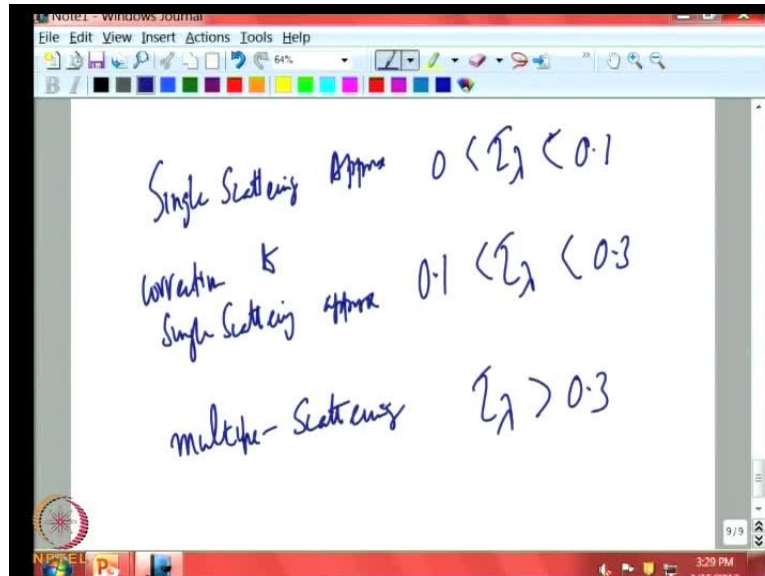 Note1 - Windows Journal
File Edit View Insert Actions Tools Help
64%
B I
Single Scattering Approx 0 < τλ < 0.1
Correction to
Single Scattering approx 0.1 < τλ < 0.3
multiple-Scattering τλ > 0.3
9/9
NPTEL
3:29 PM